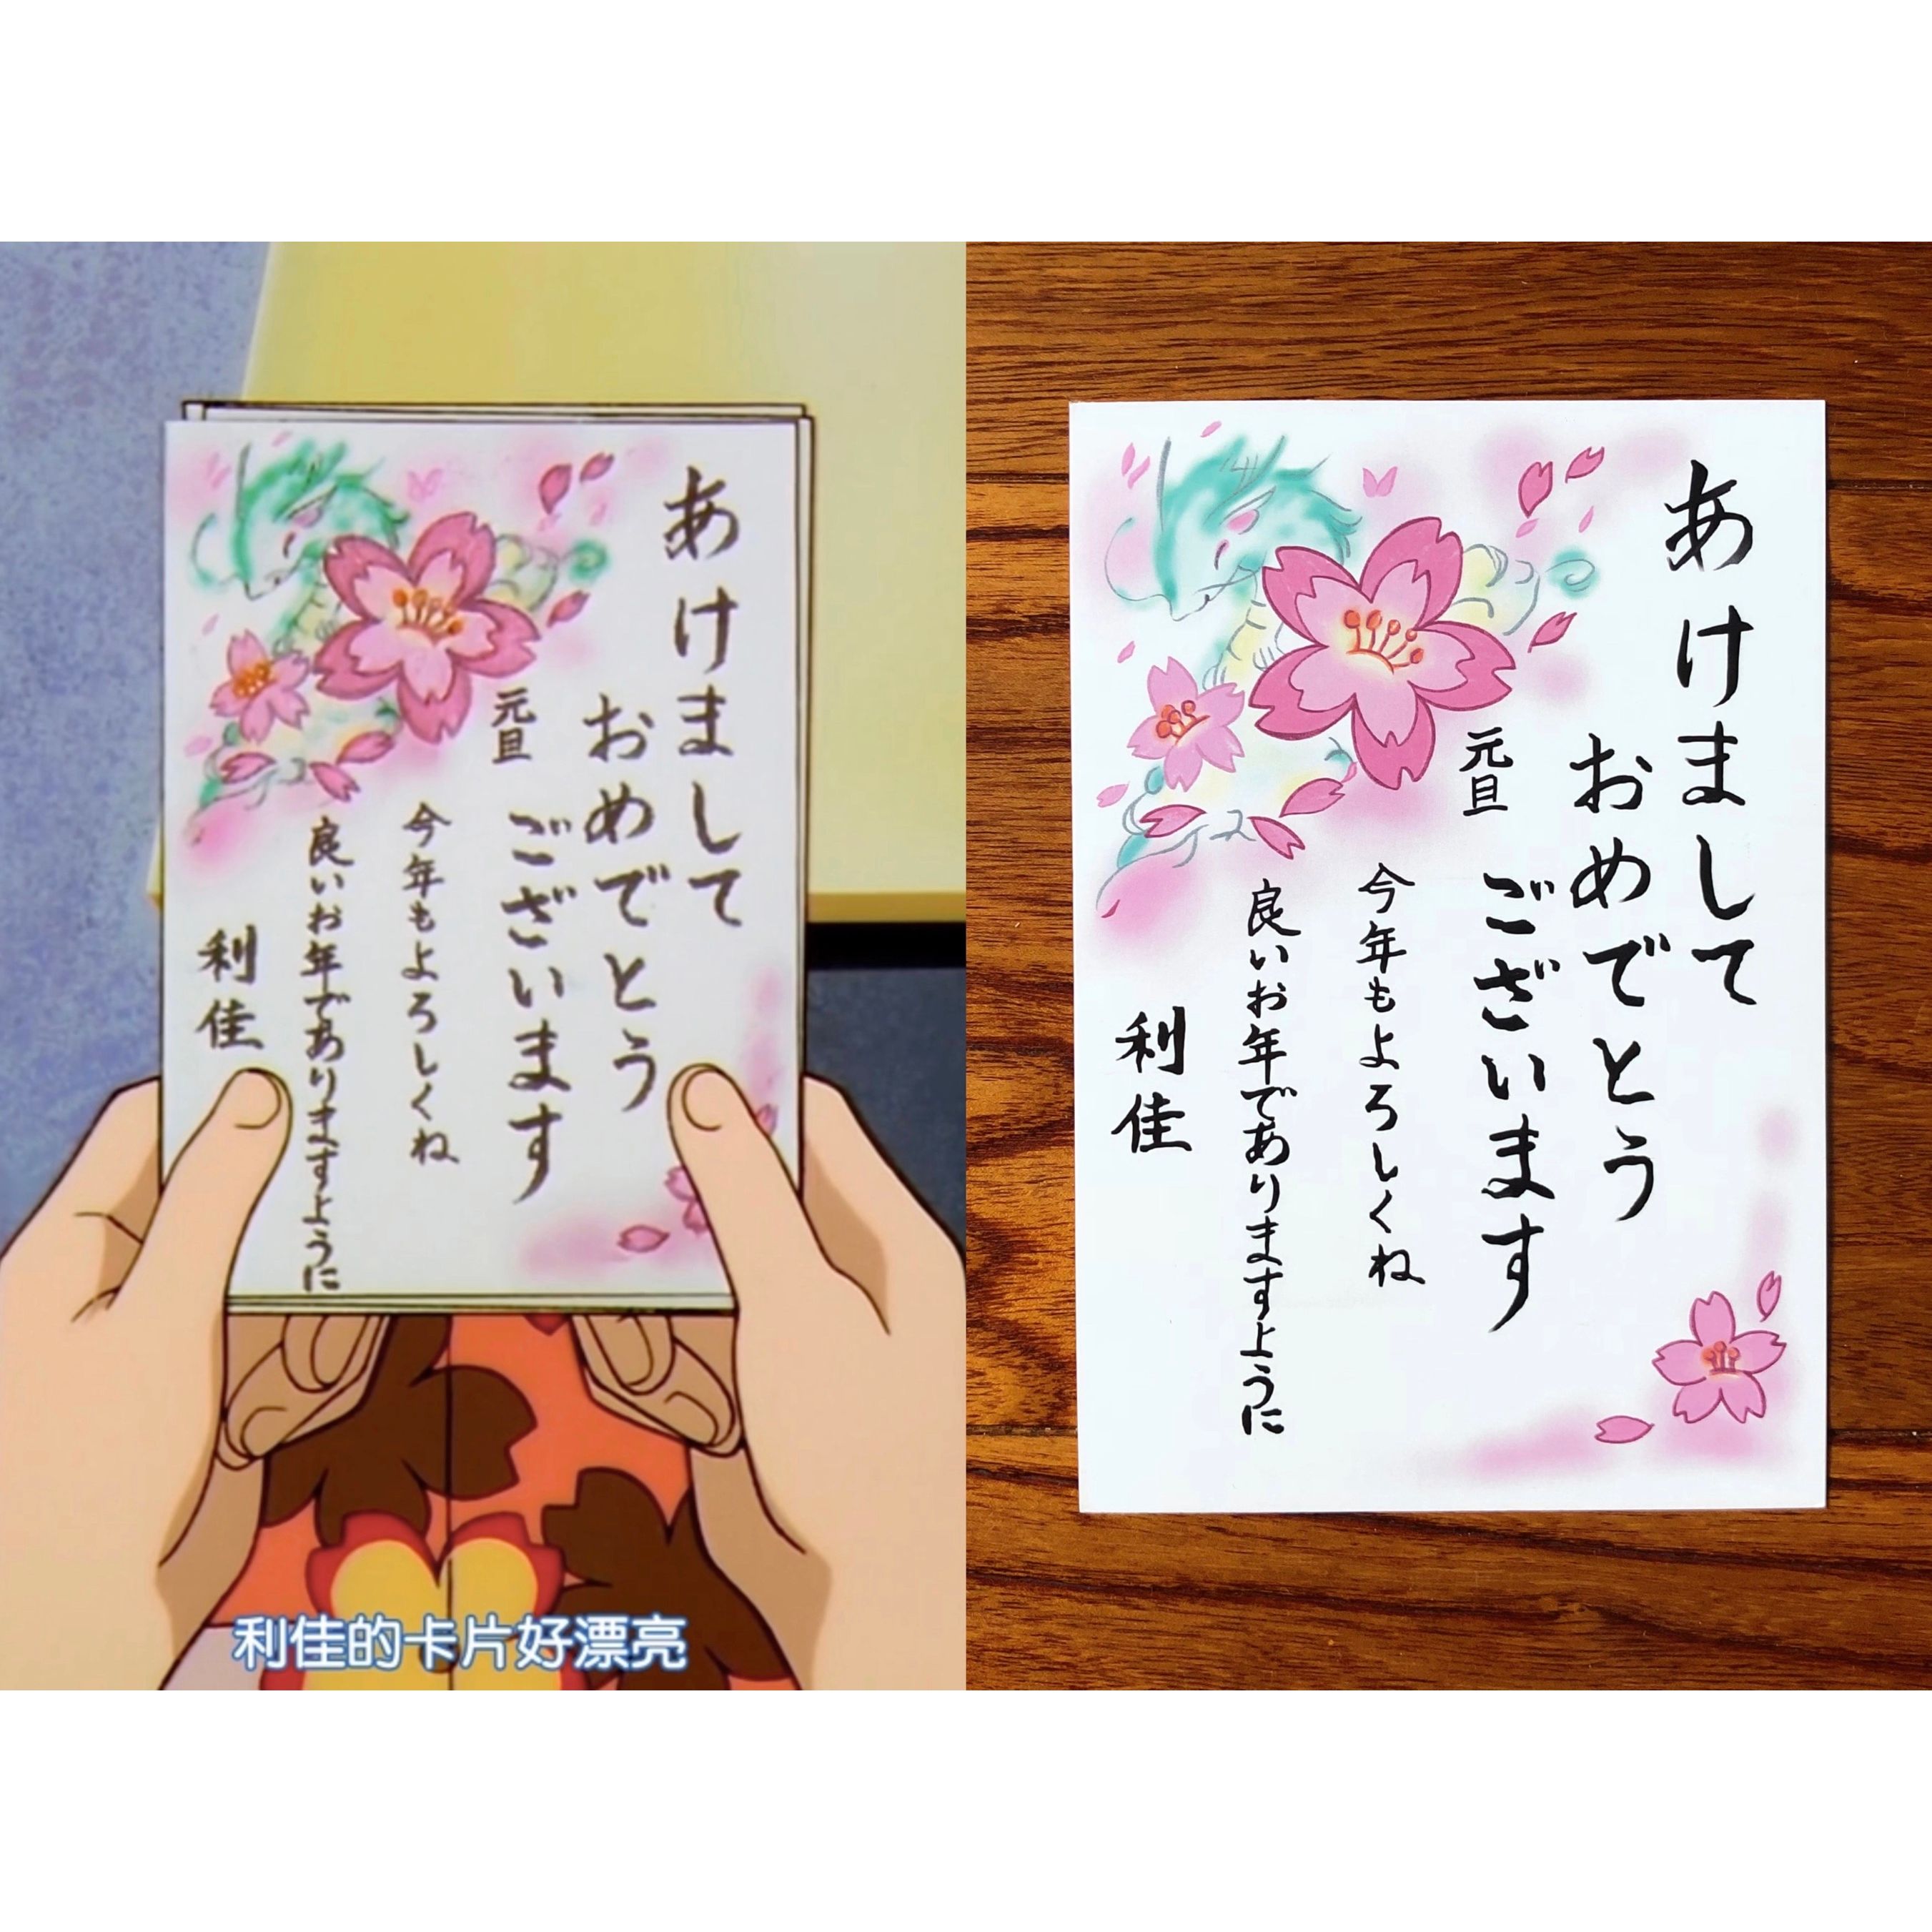 あけまして
おめでとう
ございます
元旦
今年もよろしくね
良いお年でありますように
利佳
利佳的卡片好漂亮
あけまして
おめでとう
ございます
元旦
今年もよろしくね
良いお年でありますように
利佳